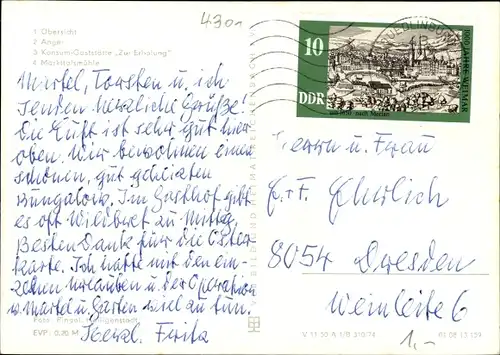 430
1 Übersicht
2 Anger
3 Konsum-Gaststätte „Zur Erholung"
4 Markttalsmühle
Martel, Torsten u. ich
senden herzliche Grüße!
Die Luft ist sehr gut hier
oben. Wir bewohnen einen
schönen, gut geheizten
Bungalow. Im Gasthof gibt
es oft Wildbret zu Mittag.
Besten Dank für die Oster-
karte. Ich hatte mit den ein-
zelnen Urlauben u. der Operation
v. Martel u. Garten viel zu tun.
Herzl. Fritz
Foto:
EVP: 0,20 M
QUEDLINBURG
10
DDR
1000 JAHRE WEIMAR
um 1650 nach Merian
Herrn u. Frau
Ehrlich
8054 Dresden
Weinleite 6
1,-